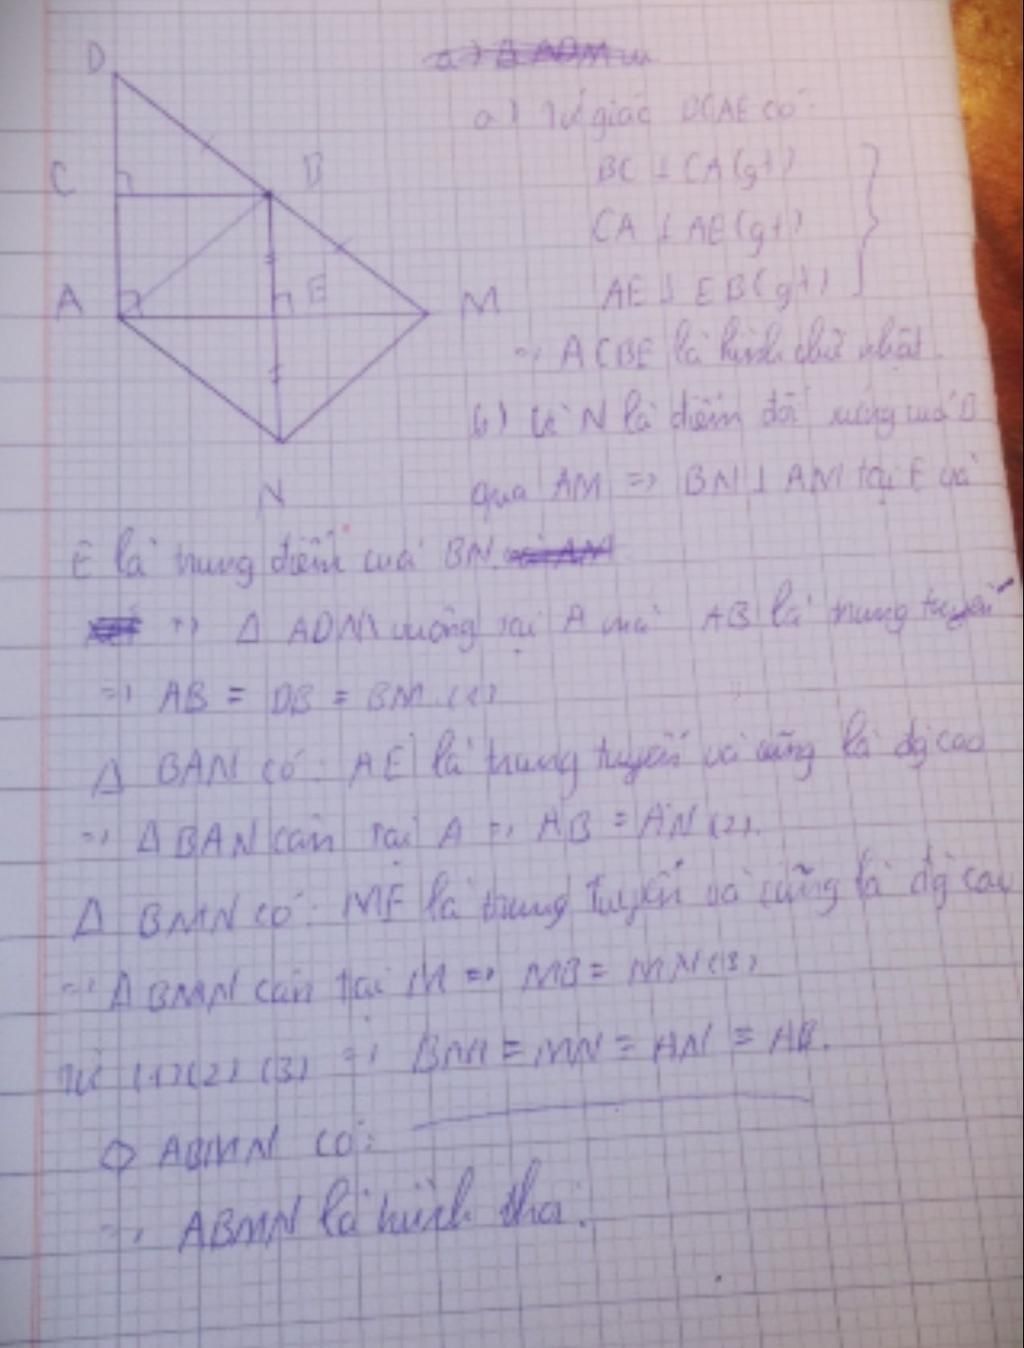 D
C
B
A
E
M
N
a) Tứ giác BCAE có:
BC ⊥ CA (gt)
CA ⊥ AE (gt)
AE ⊥ EB (gt)
=> ACBE là hình chữ nhật.
b) Vì N là điểm đối xứng của B
qua AM => BN ⊥ AM tại E và
E là trung điểm của BN
=> Δ ADM vuông tại A mà AB là trung tuyến
=> AB = DB = BM (1)
Δ BAN có: AE là trung tuyến và cũng là đg cao
=> Δ BAN cân tại A => AB = AN (2).
Δ BMN có: ME là trung tuyến và cũng là đg cao
=> Δ BMN cân tại M => MB = MN (3)
Từ (1)(2)(3) => BM = MN = AN = AB.
ABMN có:
=> ABMN là hình thoi.